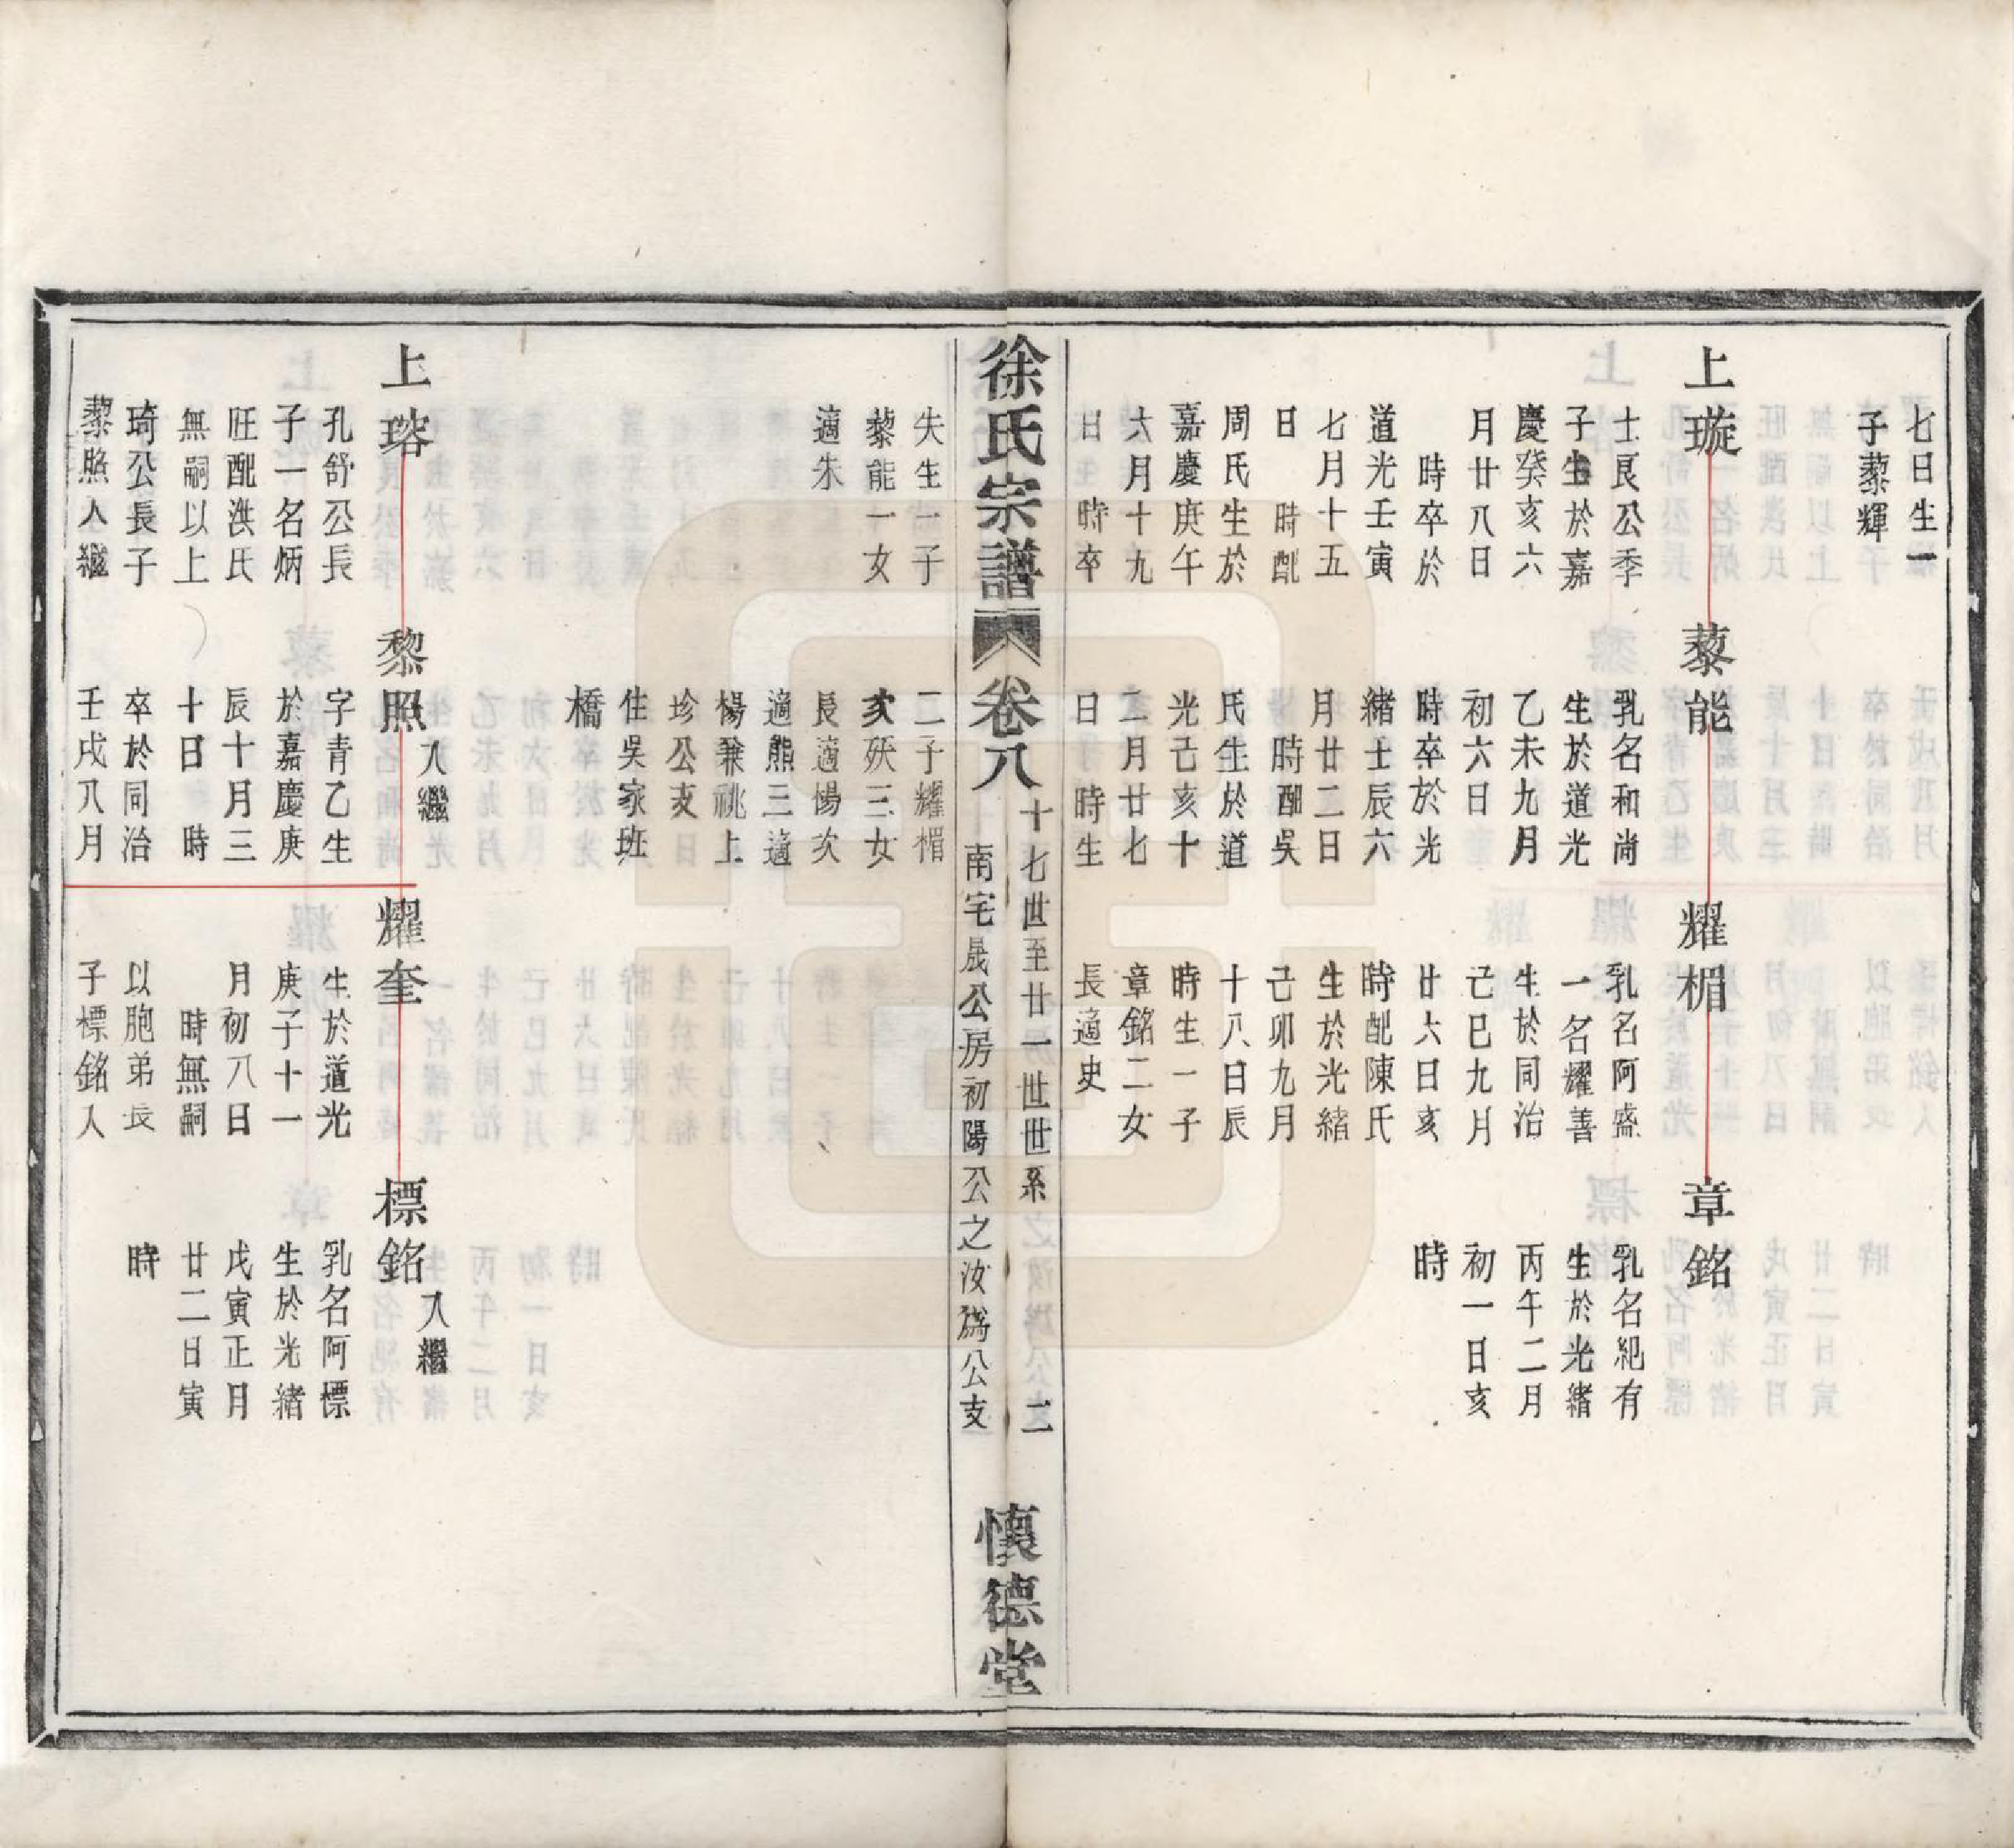 七日生一
子藜輝
上璇
士艮公季
子生於嘉
慶癸亥六
月廿八日
時卒於
道光壬寅
七月十五
日　時配
周氏生於
嘉慶庚午
六月十九
日　時卒
藜能
乳名和尚
生於道光
乙未九月
初六日
時卒於光
緒壬辰六
月廿二日
時配吳
氏生於道
光己亥十
二月廿七
日　時生
耀楣
乳名阿盛
一名耀善
生於同治
己巳九月
廿六日亥
時配陳氏
生於光緒
己卯九月
十八日辰
時生一子
章銘二女
長適史
章銘
乳名紀有
生於光緒
丙午二月
初一日亥
時
徐氏宗譜　卷八
十七世至廿一世世系　二
南宅晟公房初陽公之汝爲公支
懷德堂
失生一子
藜能一女
適朱
二子耀楣
次殀三女
長適楊次
適熊三適
楊兼祧上
珍公支
住吳家班
橋
上瑢
孔舒公長
子一名炳
旺配洪氏
無嗣以上
琦公長子
藜照入繼
黎照
入繼
字青乙生
於嘉慶庚
辰十月三
十日　時
卒於同治
壬戌八月
耀奎
生於道光
庚子十一
月初八日
時無嗣
以胞弟長
子標銘入
標銘
入繼
乳名阿標
生於光緒
戊寅正月
廿二日寅
時